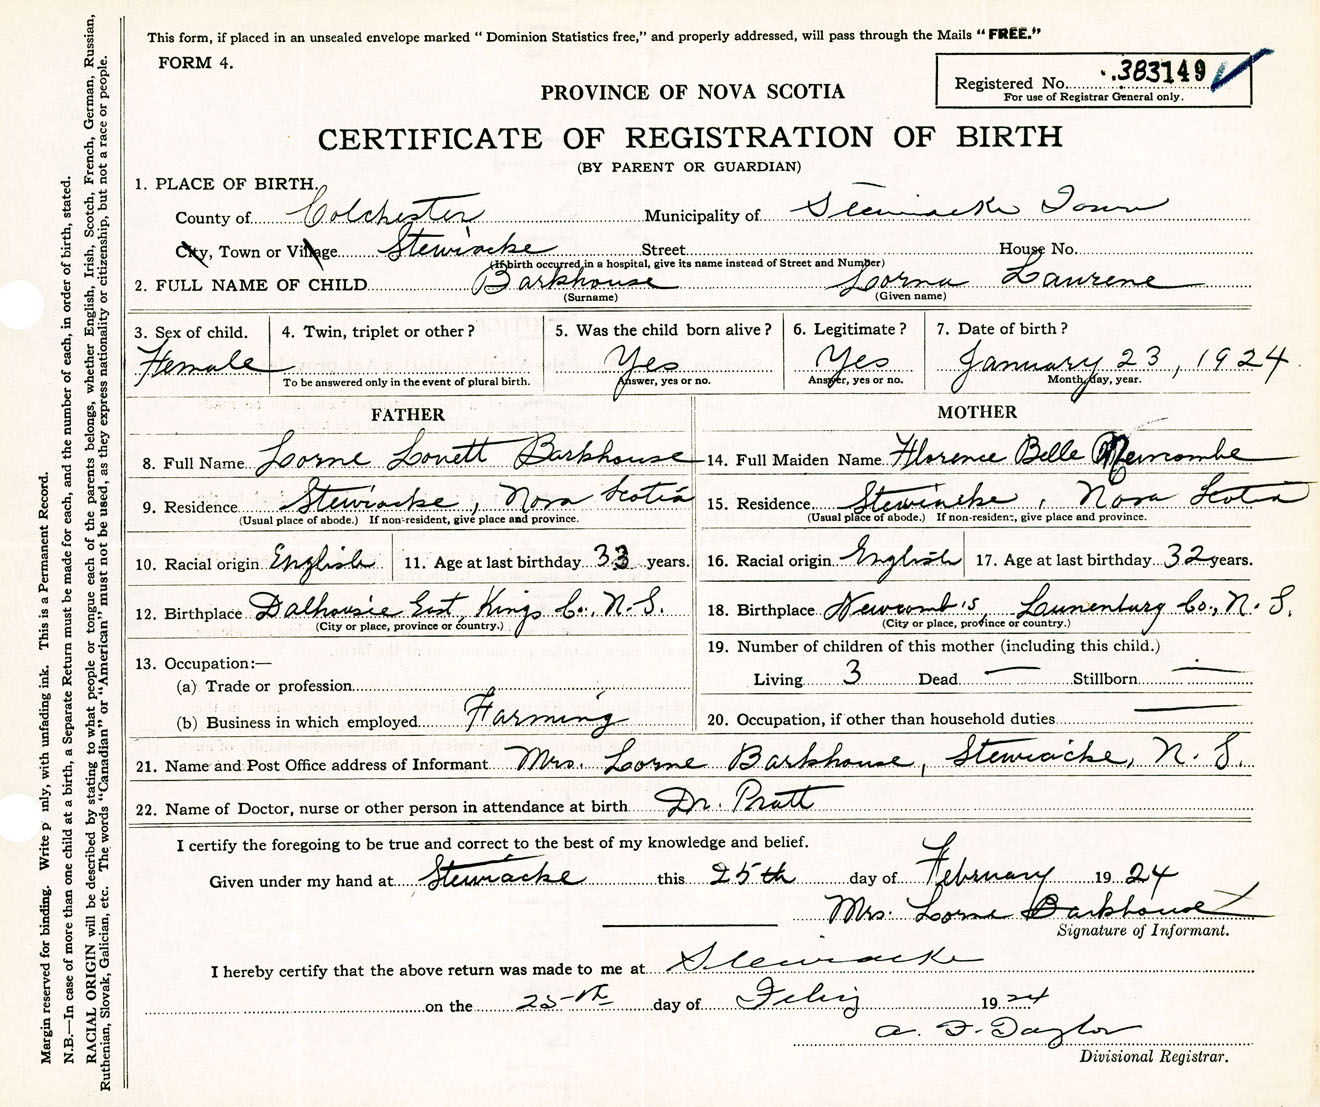 This form, if placed in an unsealed envelope marked " Dominion Statistics free," and properly addressed, will pass through the Mails "FREE."
FORM 4.
Registered No. 383149
For use of Registrar General only.
PROVINCE OF NOVA SCOTIA
CERTIFICATE OF REGISTRATION OF BIRTH
(BY PARENT OR GUARDIAN)
1. PLACE OF BIRTH.
County of Colchester Municipality of Stewiacke Town
City, Town or Village Stewiacke Street House No.
(If birth occurred in a hospital, give its name instead of Street and Number)
2. FULL NAME OF CHILD Barkhouse Lorna Laurene
(Surname) (Given name)
3. Sex of child. 4. Twin, triplet or other? 5. Was the child born alive? 6. Legitimate? 7. Date of birth?
Female Yes Yes January 23, 1924
To be answered only in the event of plural birth. Answer, yes or no. Answer, yes or no. Month, day, year.
FATHER MOTHER
8. Full Name Lorne Lovett Barkhouse 14. Full Maiden Name Florence Belle
9. Residence Stewiacke, Nova Scotia 15. Residence Stewiacke, Nova Scotia
(Usual place of abode.) If non-resident, give place and province. (Usual place of abode.) If non-resident, give place and province.
10. Racial origin English 11. Age at last birthday 33 years. 16. Racial origin English 17. Age at last birthday 32 years.
12. Birthplace Dalhousie East, Kings Co., N.S. 18. Birthplace Newcomb's, Lunenburg Co., N.S.
(City or place, province or country.) (City or place, province or country.)
13. Occupation:— 19. Number of children of this mother (including this child.)
(a) Trade or profession Living 3 Dead — Stillborn —
(b) Business in which employed Farming 20. Occupation, if other than household duties —
21. Name and Post Office address of Informant Mrs. Lorne Barkhouse, Stewiacke, N.S.
22. Name of Doctor, nurse or other person in attendance at birth Dr. Pratt
I certify the foregoing to be true and correct to the best of my knowledge and belief.
Given under my hand at Stewiacke this 25th day of February 1924
Mrs. Lorne Barkhouse
Signature of Informant.
I hereby certify that the above return was made to me at Stewiacke
on the 25th day of 1924
A. F. Taylor
Divisional Registrar.
Margin reserved for binding. Write p nly, with unfading ink. This is a Permanent Record.
N.B.—In case of more than one child at a birth, a Separate Return must be made for each, and the number of each, in order of birth, stated.
RACIAL ORIGIN will be described by stating to what people or tongue each of the parents belongs, whether English, Irish, Scotch, French, German, Russian,
Ruthenian, Slovak, Galician, etc. The words "Canadian" or "American" must not be used, as they express nationality or citizenship, but not a race or people.